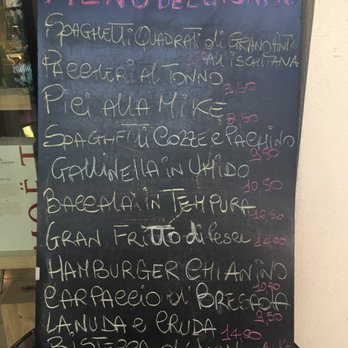 MENÙ DEL GIORNO
SPAGHETTI QUADRATI di GRANO ANTICO
ALL'ISCHITANA
PACCHERI AL TONNO
PICI ALLA MIKE 8,50
SPAGHETTI COZZE e PACHINO
GALLINELLA in UMIDO 9,50
10,50
BACCALÀ in TEMPURA
GRAN FRITTO di PESCE 14,00
HAMBURGER CHIANINO
CARPACCIO di BRESAOLA
LA NUDA e CRUDA 14,00
BISTECCA di